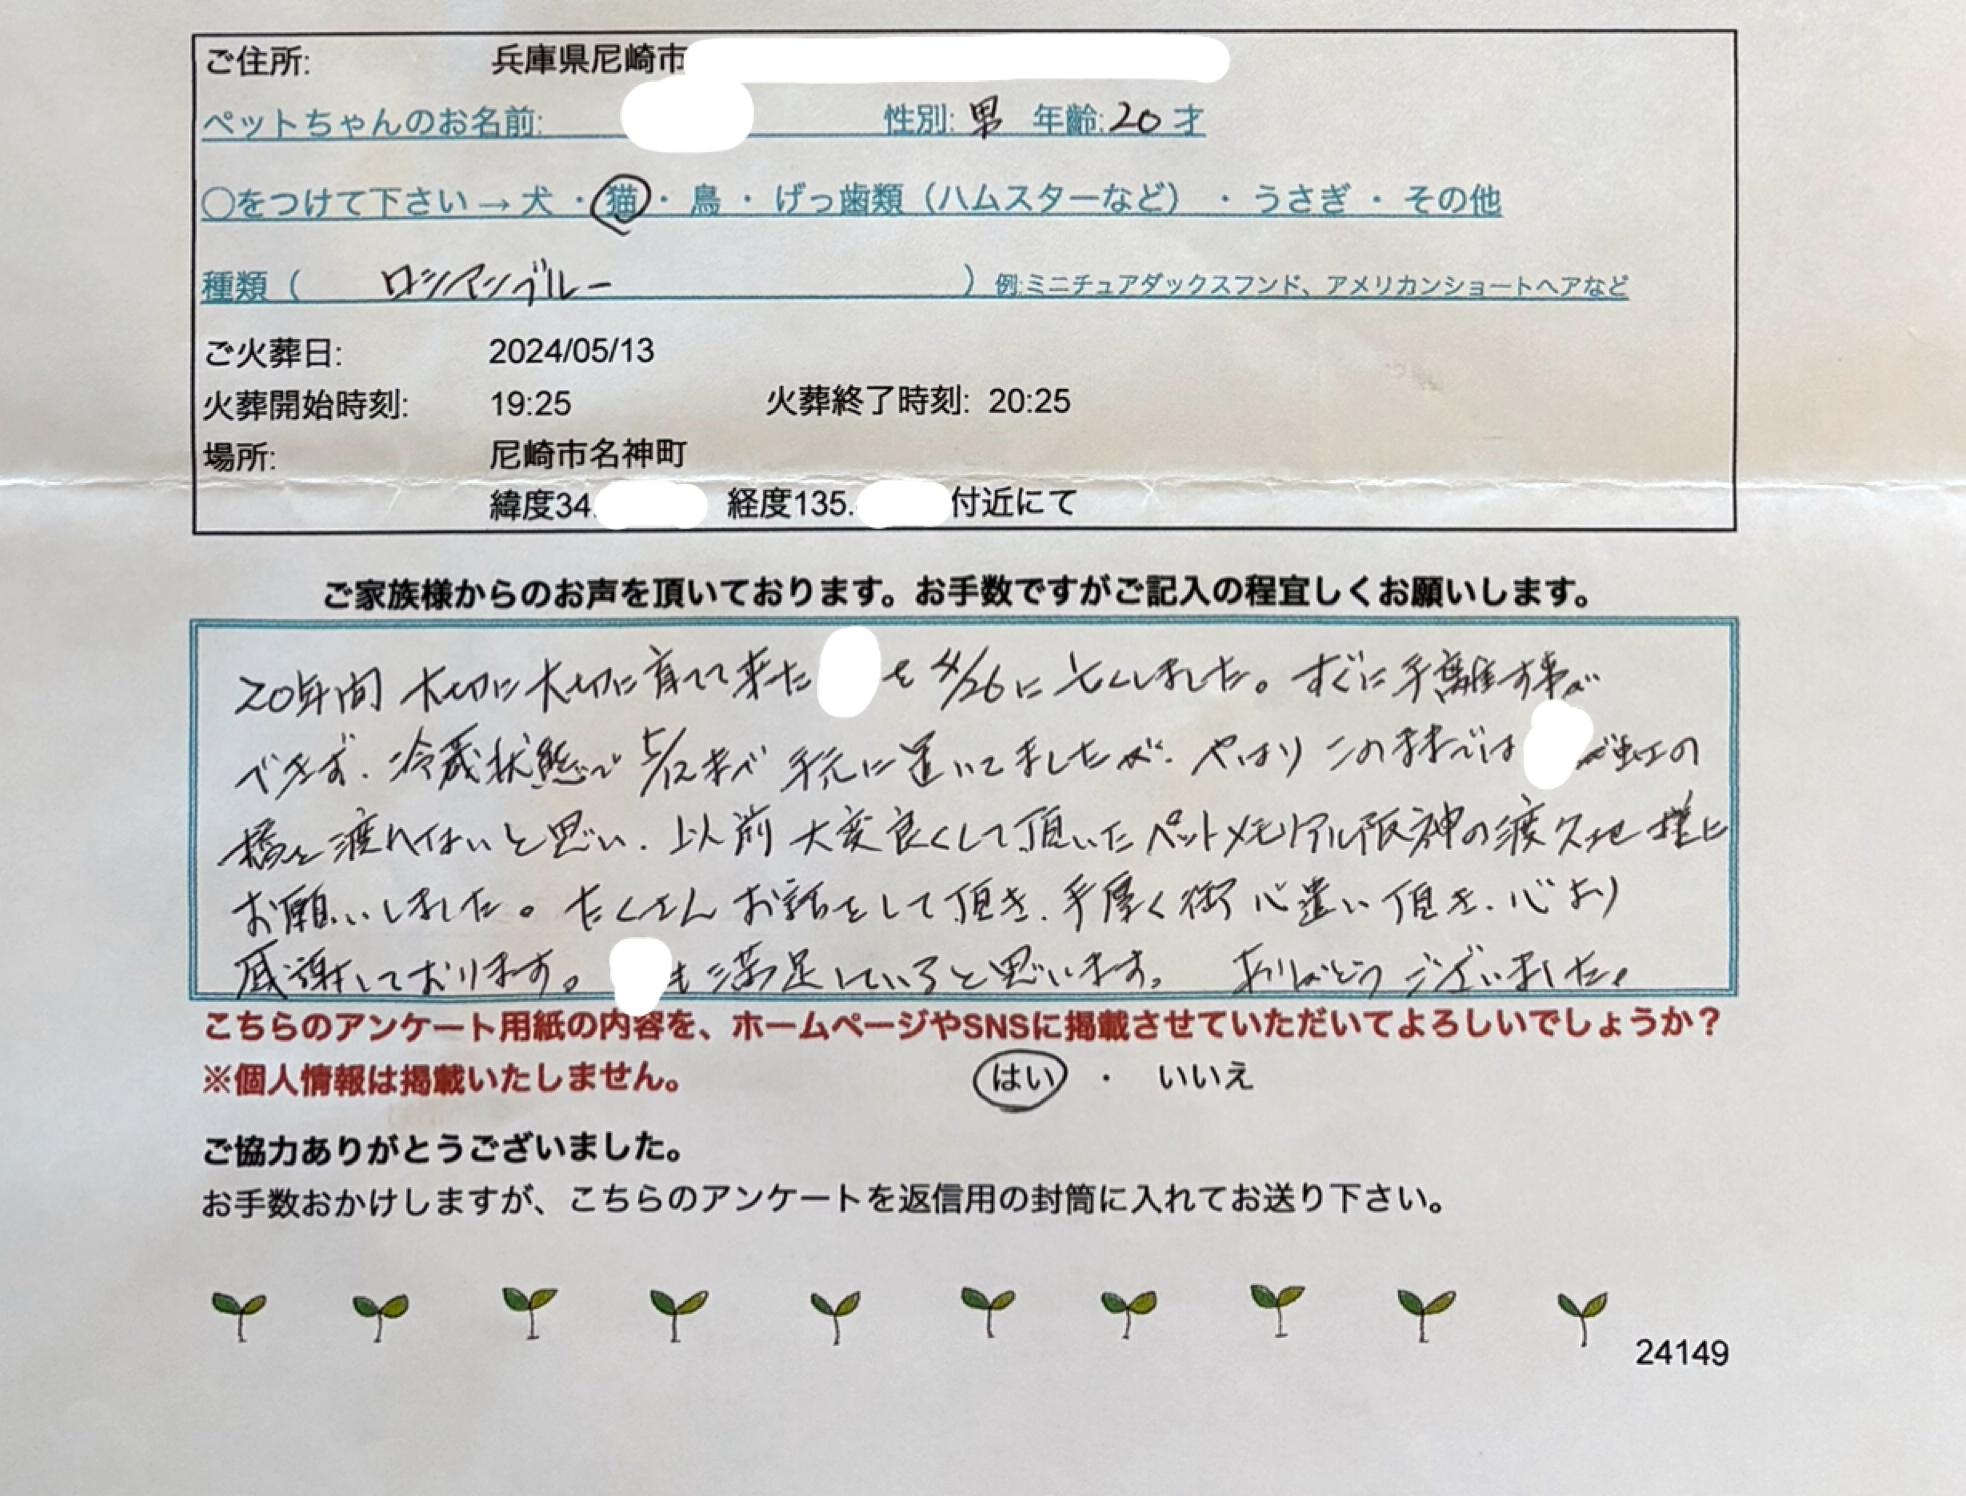 ご住所: 兵庫県尼崎市
ペットちゃんのお名前: 性別: 男 年齢: 20 才
○をつけて下さい→犬 ・ 猫 ・ 鳥 ・ げっ歯類（ハムスターなど） ・ うさぎ ・ その他
種類（ ロシアンブルー ）例:ミニチュアダックスフンド、アメリカンショートヘアなど
ご火葬日: 2024/05/13
火葬開始時刻: 19:25 火葬終了時刻: 20:25
場所: 尼崎市名神町
緯度34. 経度135. 付近にて
ご家族様からのお声を頂いております。お手数ですがご記入の程宜しくお願いします。
20年間 大切に大切に育てて来た を 4/26に亡くしました。すぐに手離す事が
できず、冷蔵状態で 5/12まで 手元に置いてましたが、やはり このままでは が虹の
橋を渡れないと思い、以前 大変良くして頂いた ペットメモリアル阪神の渡久地様に
お願いしました。たくさん お話をして頂き、手厚く御心遣い頂き、心より
感謝しております。 も満足していると思います。 ありがとうございました。
こちらのアンケート用紙の内容を、ホームページやSNSに掲載させていただいてよろしいでしょうか？
※個人情報は掲載いたしません。 はい ・ いいえ
ご協力ありがとうございました。
お手数おかけしますが、こちらのアンケートを返信用の封筒に入れてお送り下さい。
24149